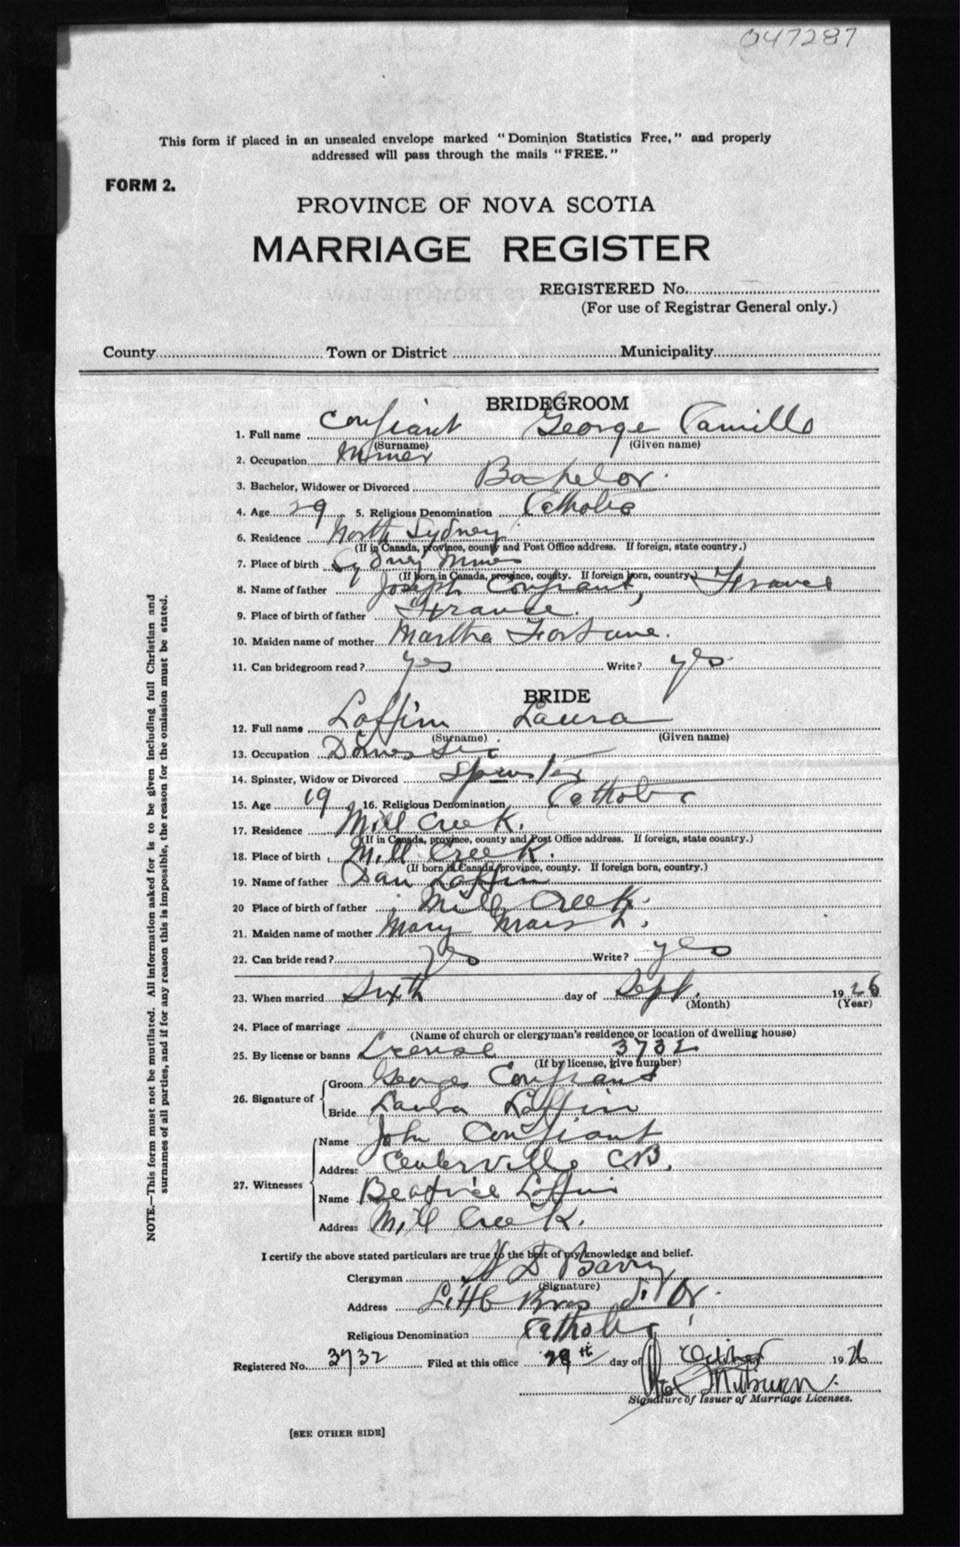 047287
This form if placed in an unsealed envelope marked "Dominion Statistics Free," and properly
addressed will pass through the mails "FREE."
FORM 2.
PROVINCE OF NOVA SCOTIA
MARRIAGE REGISTER
REGISTERED No.
(For use of Registrar General only.)
County Town or District Municipality
BRIDEGROOM
1. Full name Confiant George Camille
(Surname) (Given name)
2. Occupation Miner
3. Bachelor, Widower or Divorced Bachelor.
4. Age 29 5. Religious Denomination Catholic
6. Residence North Sydney
(If in Canada, province, county and Post Office address. If foreign, state country.)
7. Place of birth Sydney Mines
(If born in Canada, province, county. If foreign born, country.)
8. Name of father Joseph Confiant, France
9. Place of birth of father France.
10. Maiden name of mother Martha Fortune.
11. Can bridegroom read? yes Write? yes.
BRIDE
12. Full name Laffin Laura
(Surname) (Given name)
13. Occupation Domestic
14. Spinster, Widow or Divorced Spinster
15. Age 19 16. Religious Denomination Catholic
17. Residence Mill Creek.
(If in Canada, province, county and Post Office address. If foreign, state country.)
18. Place of birth Mill Creek.
(If born in Canada, province, county. If foreign born, country.)
19. Name of father Dan Laffin
20 Place of birth of father Mill Creek.
21. Maiden name of mother Mary Marsh.
22. Can bride read? yes Write? yes
23. When married Sixth day of Sept. 1926
(Month) (Year)
24. Place of marriage
(Name of church or clergyman's residence or location of dwelling house)
25. By license or banns License 3732
(If by license, give number)
26. Signature of
Groom George Confiant
Bride Laura Laffin
27. Witnesses
Name John Confiant
Address Centerville CB.
Name Beatrice Laffin
Address Mill Creek.
I certify the above stated particulars are true to the best of my knowledge and belief.
Clergyman D Barry
(Signature)
Address Little Bras d'Or.
Religious Denomination Catholic
Registered No. 3732 Filed at this office 28th day of October 1926
Milburn.
Signature of Issuer of Marriage Licenses.
[SEE OTHER SIDE]
NOTE.—This form must not be mutilated. All information asked for is to be given including full Christian and
surnames of all parties, and if for any reason this is impossible, the reason for the omission must be stated.